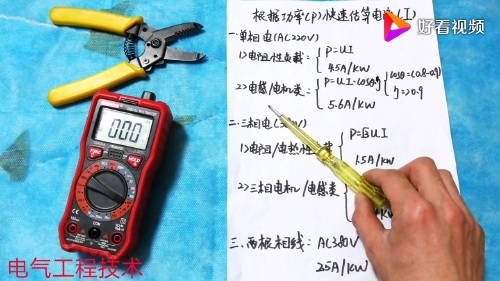 好看视频
根据功率(P)快速估算电流(I)
一.单相电(AC220V)
1>电阻性负载:
P=UI
4.5A/KW
2>电感/电机类:
P=UI·cosφ·η
cosφ=(0.8-0.9)
η=>0.9
5.6A/KW
二.三相电(
1>电阻/电热性
P=√3UI
1.5A/KW
2>三相电机/电感类
A/KW
三、两根相线: AC380V
2.5A/KW
000
电气工程技术